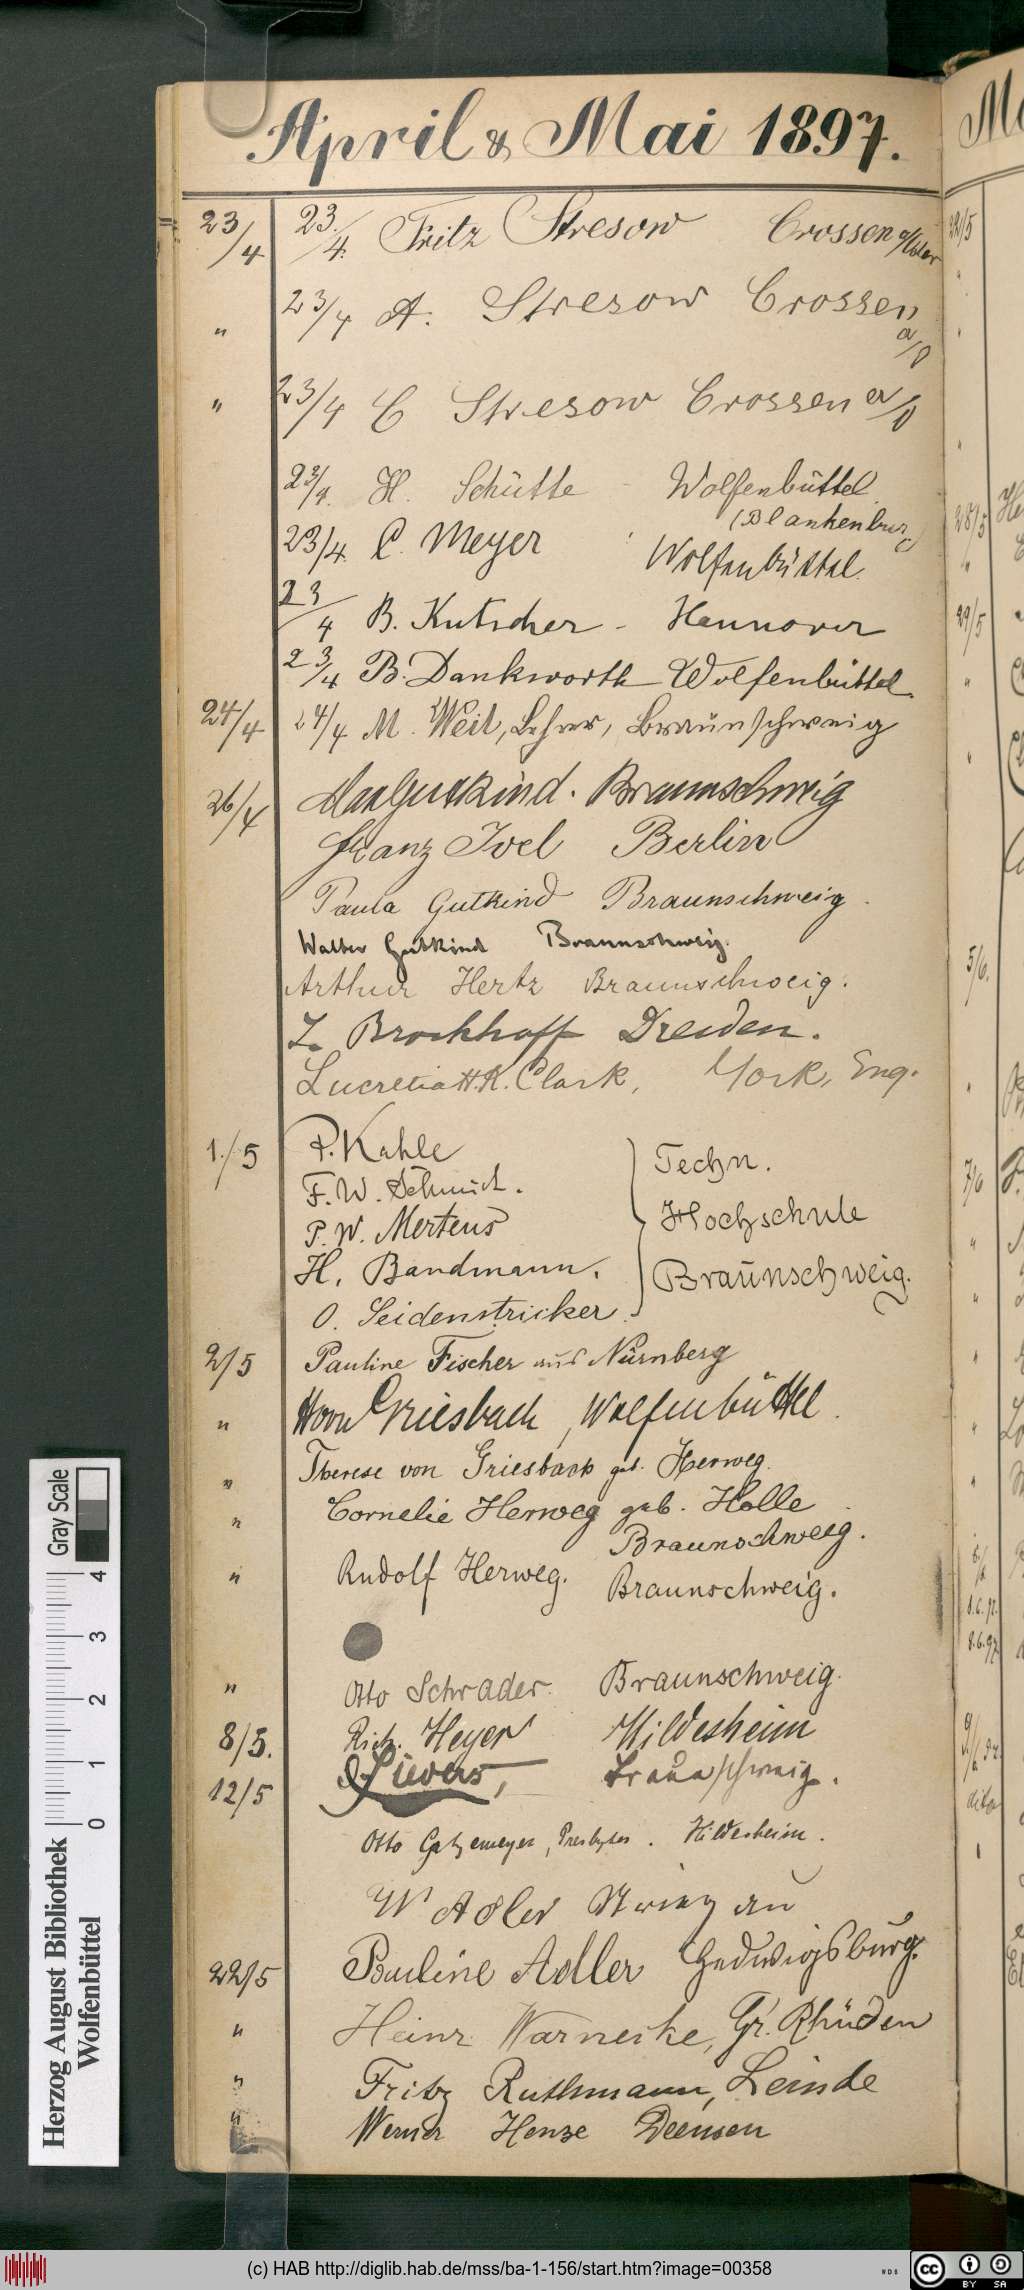 April & Mai 1897.
23/4 23./4. Fritz Stresow Crossen a/Oder
" 23/4 A. Stresow Crossen a/O
" 23/4 C Stresow Crossen a/O
23/4. H. Schütte - Wolfenbüttel
(Blankenburg)
23/4. C. Meyer Wolfenbüttel.
23/4 B. Kutscher - Hannover
23/4 B. Dankworth Wolfenbüttel.
24/4 24/4 M. Weil, Lehrer, Braunschweig
26/4 Max Gutkind. Braunschweig
Franz Ivel Berlin
Paula Gutkind Braunschweig.
Walter Gutkind Braunschweig.
Arthur Hertz Braunschweig.
Brockhoff Dresden.
Lucretia H.K. Clark, York, Eng.
1./5 P. Kahle
F. W. Schmidt.
P. W. Mertens
H. Bandmann.
O. Seidenstricker.
Techn.
Hochschule
Braunschweig.
2/5 Pauline Fischer aus Nürnberg
" von Griesbach, Wolfenbüttel.
" Therese von Griesbach geb. Herweg.
" Cornelie Herweg geb. Holle
Braunschweig.
" Rudolf Herweg. Braunschweig.
" Otto Schrader. Braunschweig.
8/5. Rich. Heyer Hildesheim
12/5 Sievers, Braunschweig.
Otto Gatzemeyer, Presbyter. Hildesheim.
W Adler
22/5 Pauline Adler Hedwigsburg.
" Heinr. Warnecke, Gr. Rhüden
" Fritz Ruthmann, Leinde
" Werner Henze Deensen
Herzog August Bibliothek
Wolfenbüttel
0 1 2 3 4
Gray Scale
(c) HAB http://diglib.hab.de/mss/ba-1-156/start.htm?image=00358
cc BY SA